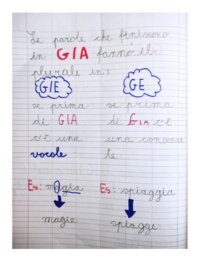 Le parole che finiscono
in GIA fanno il
plurale in:
GIE
se prima
di GIA
c'è una
vocale
Es: magia
magie
GE
se prima
di GIA c'è
una consonan
te
Es: spiaggia
spiagge